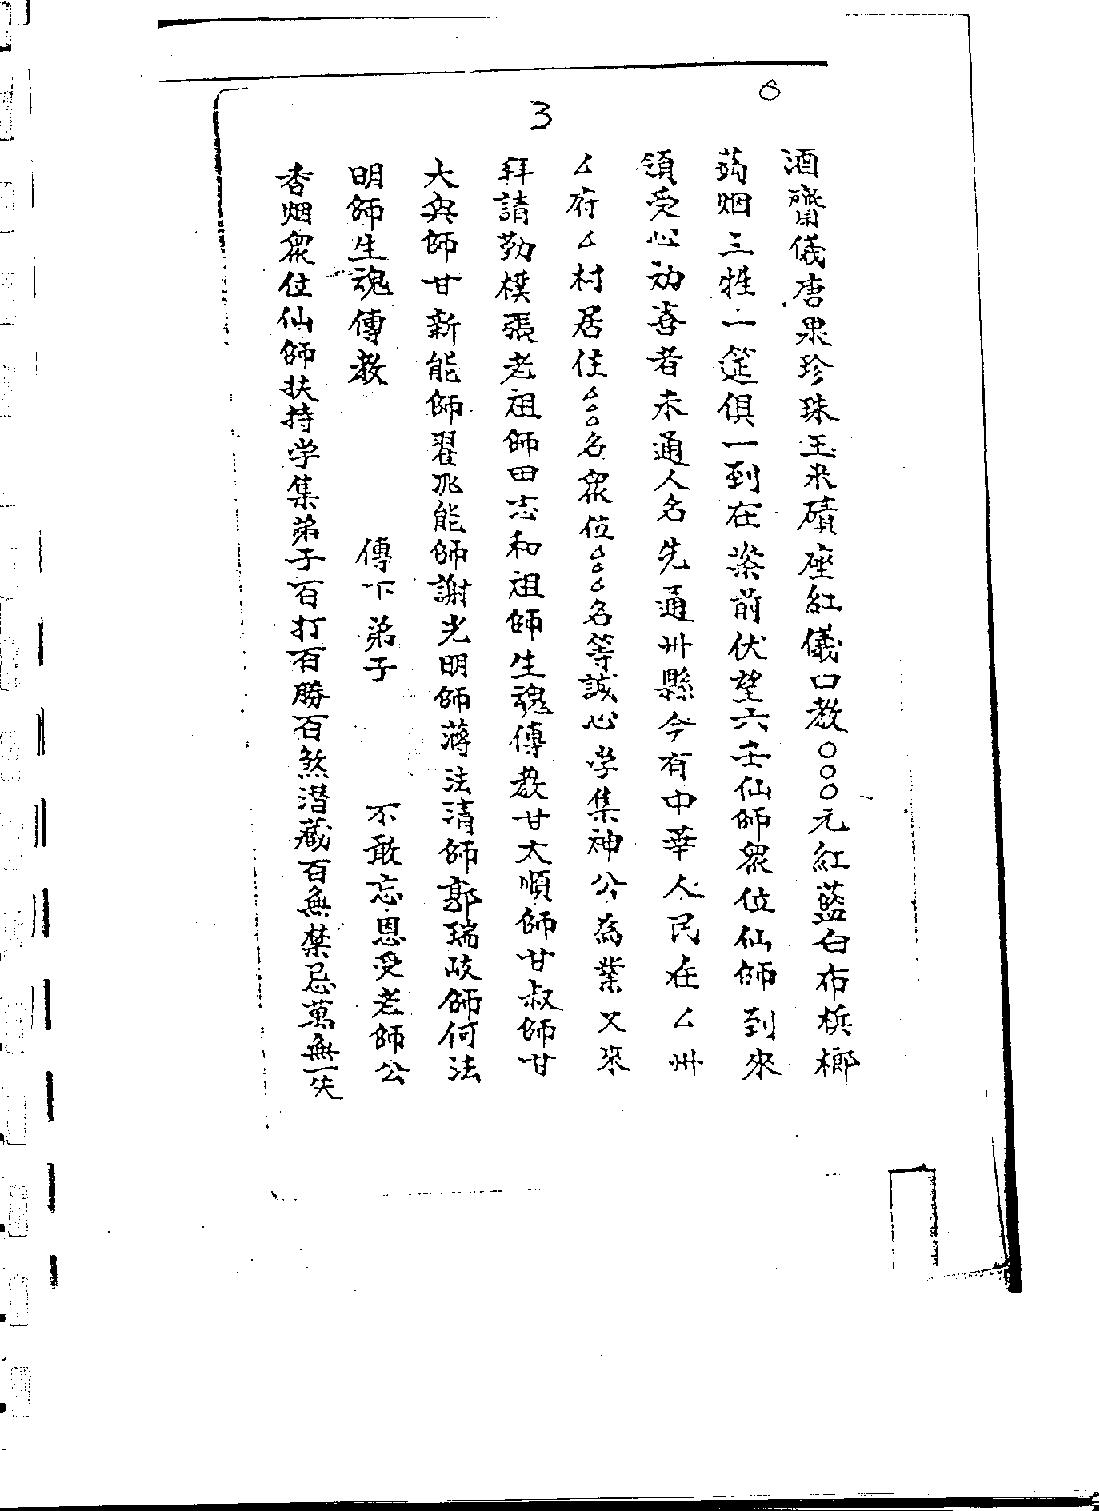 6
3
酒齋儀唐果珍珠玉米磧座紅儀口教〇〇〇元紅藍白布梹榔
蒟烟三牲一筵俱一到在案前伏望六壬仙師衆位仙師到來
領受心劝喜者未通人名先通州縣今有中華人民在厶州
厶府厶村居住厶厶厶名衆位厶厶厶名等誠心学集神公為業又來
拜請勤樸張老祖師田志和祖師生魂傳教甘大順師甘叔師甘
大興師甘新能師翟兆能師謝光明師蔣法清師郭瑞岐師何法
明師生魂傳教 傳下弟子 不敢忘恩受老師公
香烟衆位仙師扶持学集弟子百打百勝百煞潜藏百無禁忌萬無一失